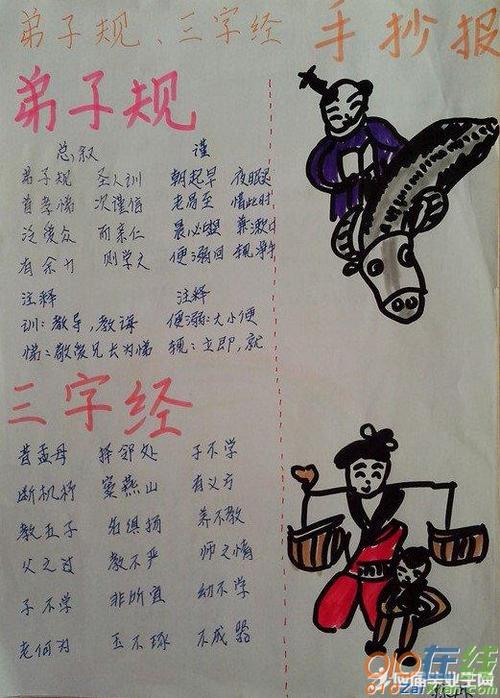 弟子规、三字经 手抄报
弟子规
总叙 谨
弟子规 圣人训 朝起早 夜眠迟
首孝悌 次谨信 老易至 惜此时
泛爱众 而亲仁 晨必盥 兼漱口
有余力 则学文 便溺回 辄净手
注释 注释
训:教导,教诲 便溺:大小便
悌:敬爱兄长为悌 辄:立即,就
三字经
昔孟母 择邻处 子不学
断机杼 窦燕山 有义方
教五子 名俱扬 养不教
父之过 教不严 师之惰
子不学 非所宜 幼不学
老何为 玉不琢 不成器
910在线